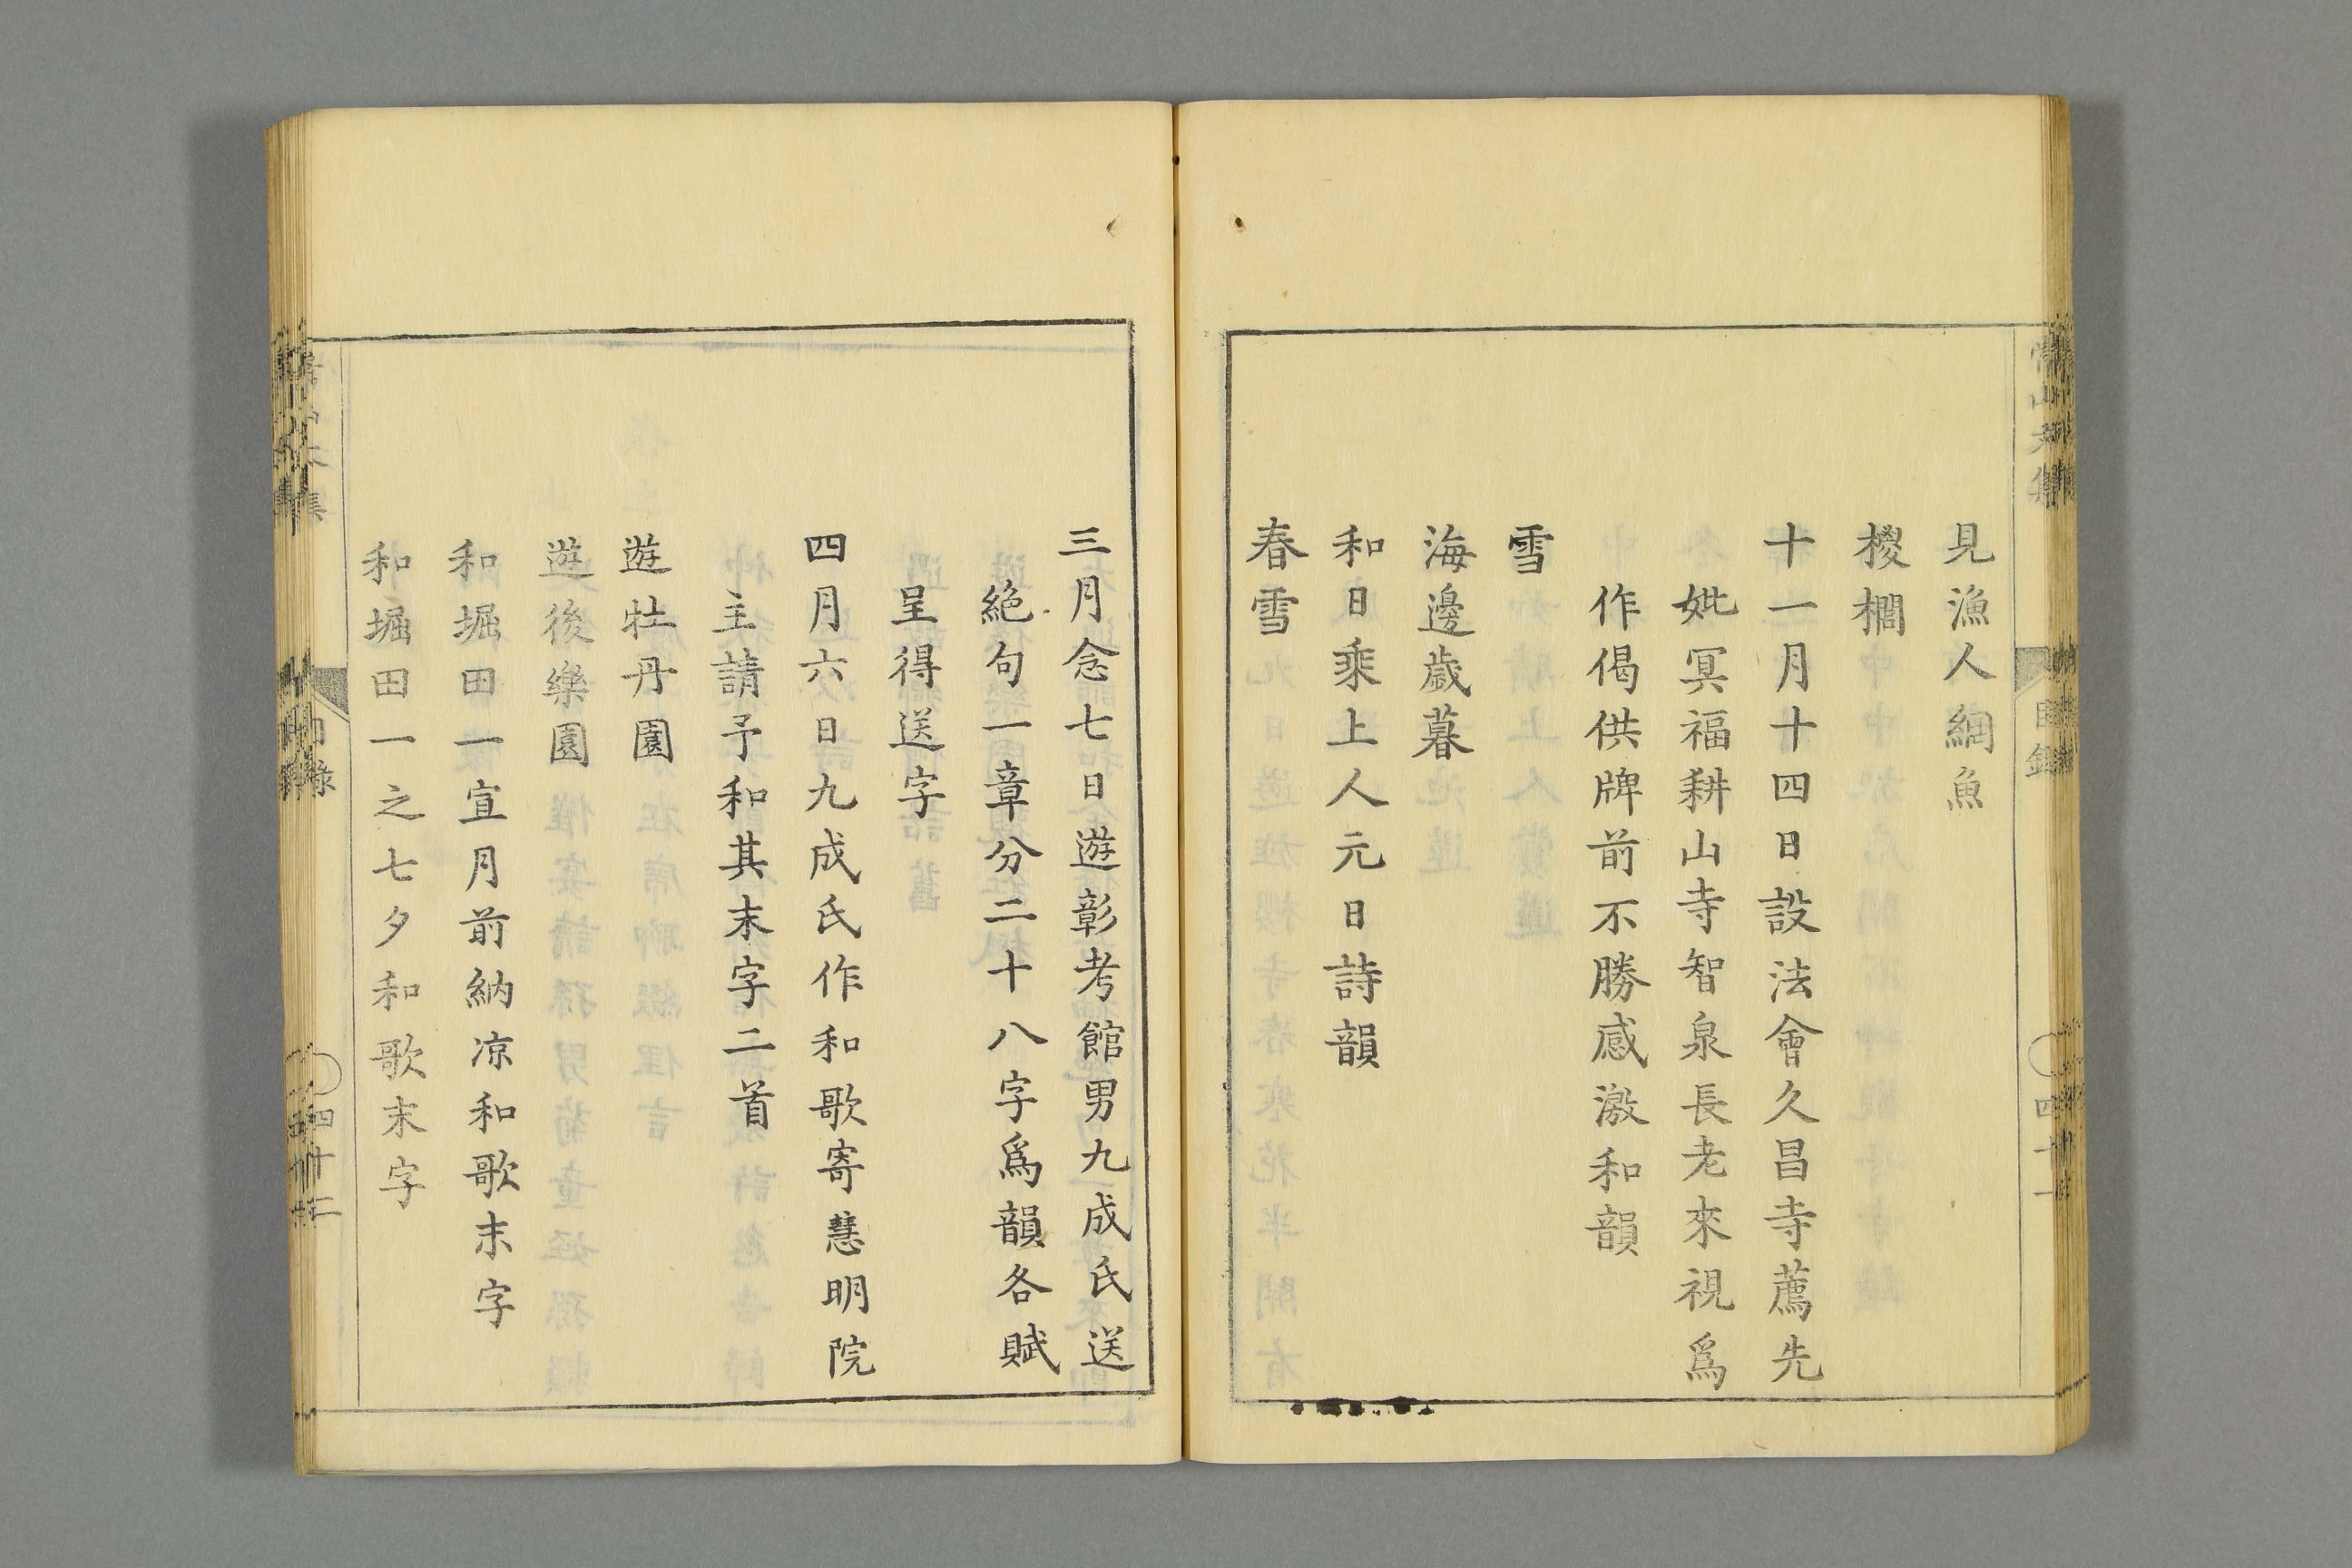 見漁人網魚
椶櫚
十一月十四日設法會久昌寺薦先
妣冥福耕山寺智泉長老來視爲
作偈供牌前不勝感激和韻
雪
海邊歳暮
和日乘上人元日詩韻
春雪
三月念七日遊彰考館男九成氏送
絶句一章分二十八字爲韻各賦
呈得送字
四月六日九成氏作和歌寄慧明院
主請予和其末字二首
遊牡丹園
遊後樂園
和堀田一宣月前納凉和歌末字
和堀田一之七夕和歌末字